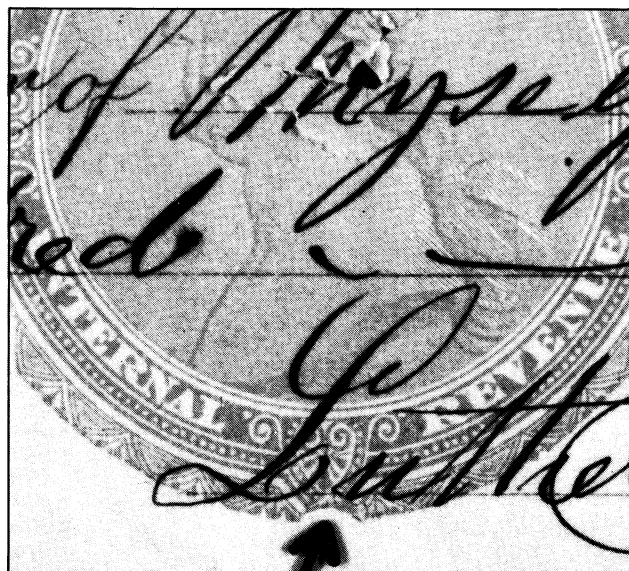 of Myself
red
INTERNAL REVENUE